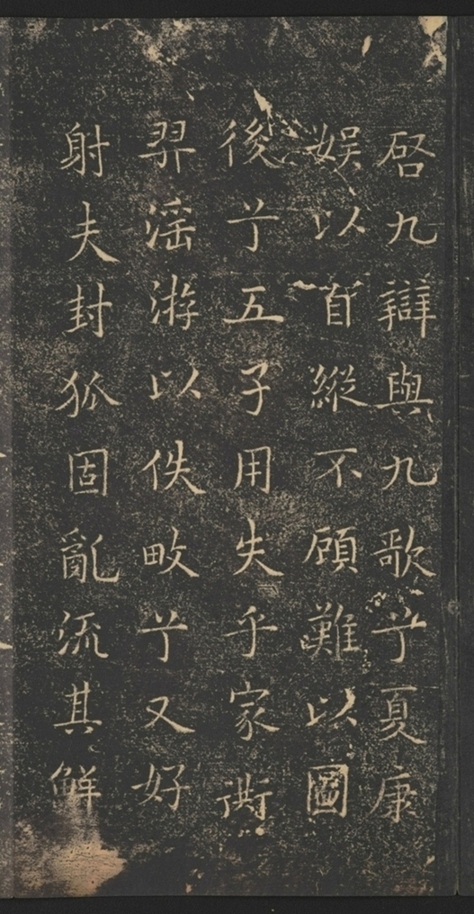 啓九辯與九歌兮夏康
娱以自縱不顧難以圖
後兮五子用失乎家衖
羿滛游以佚畋兮又好
射夫封狐固亂流其鮮